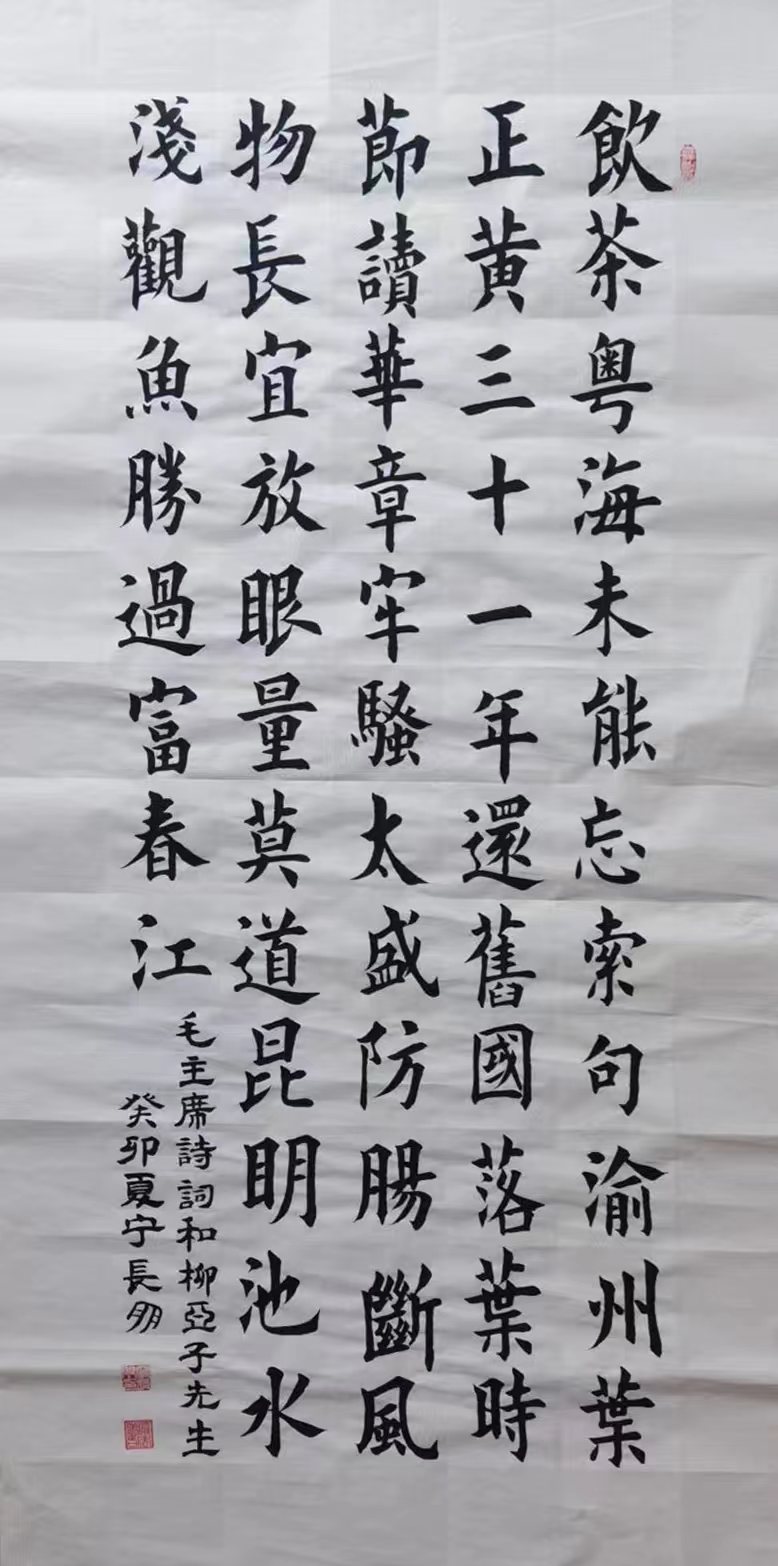 飲茶粵海未能忘索句渝州葉
正黄三十一年還舊國落葉時
節讀華章牢騷太盛防腸斷風
物長宜放眼量莫道昆明池水
淺觀魚勝過富春江
毛主席詩詞和柳亞子先生
癸卯夏宁長朋